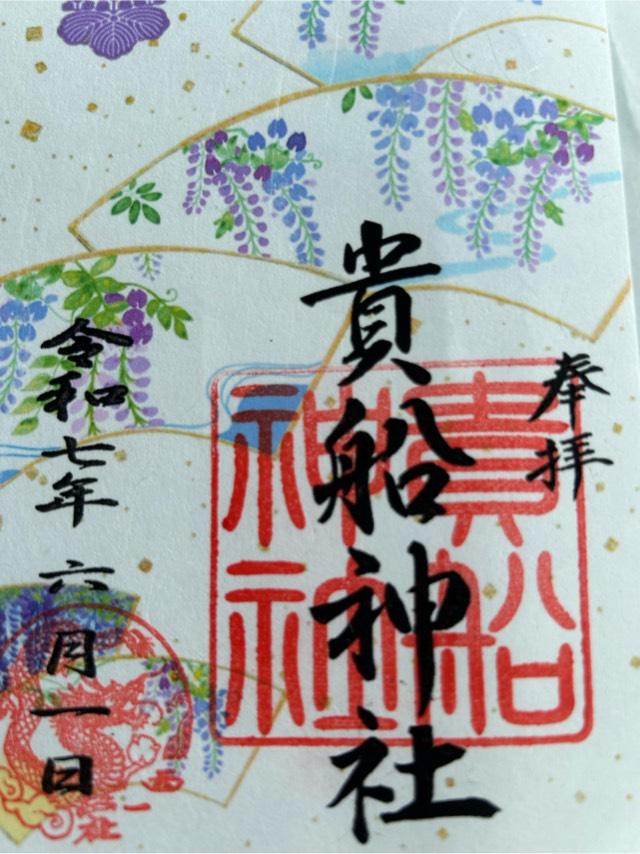 奉拝
貴船神社
貴船神社
令和七年六月一日